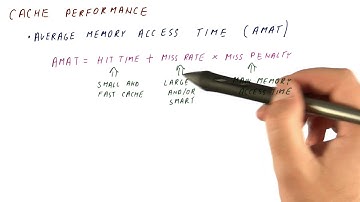 CACHE PERFORMANCE
• AVERAGE MEMORY ACCESS TIME (AMAT)
AMAT = HIT TIME + MISS RATE × MISS PENALTY
SMALL AND FAST CACHE
LARGE AND/OR SMART
MEMORY ACCESS TIME